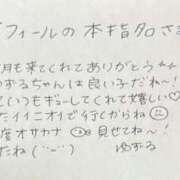 フィールの本指名さま
月も来てくれてありがとう
ずるちゃんは良い子だね～!
いつもギューしてくれて嬉しい♡
たイイニオイで行くからね
度オサカナ 見せてね～!
たね(¨)
ゆずる